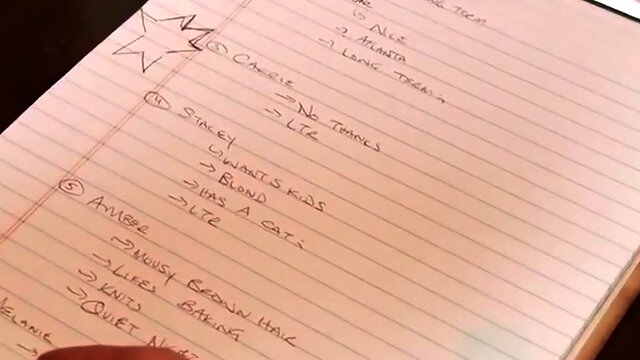 TERM
↳ NICE
→ ATLANTA
→ LONG TERM?
③ CARRIE
→ NO THANKS
→ LTR
④ STACEY
↳ WANTS KIDS
→ BLOND
→ HAS A CAT?
→ LTR
⑤ AMBER
→ MOUSY BROWN HAIR
→ LIKES BAKING
→ KNITS
→ QUIET
MELANIE
→